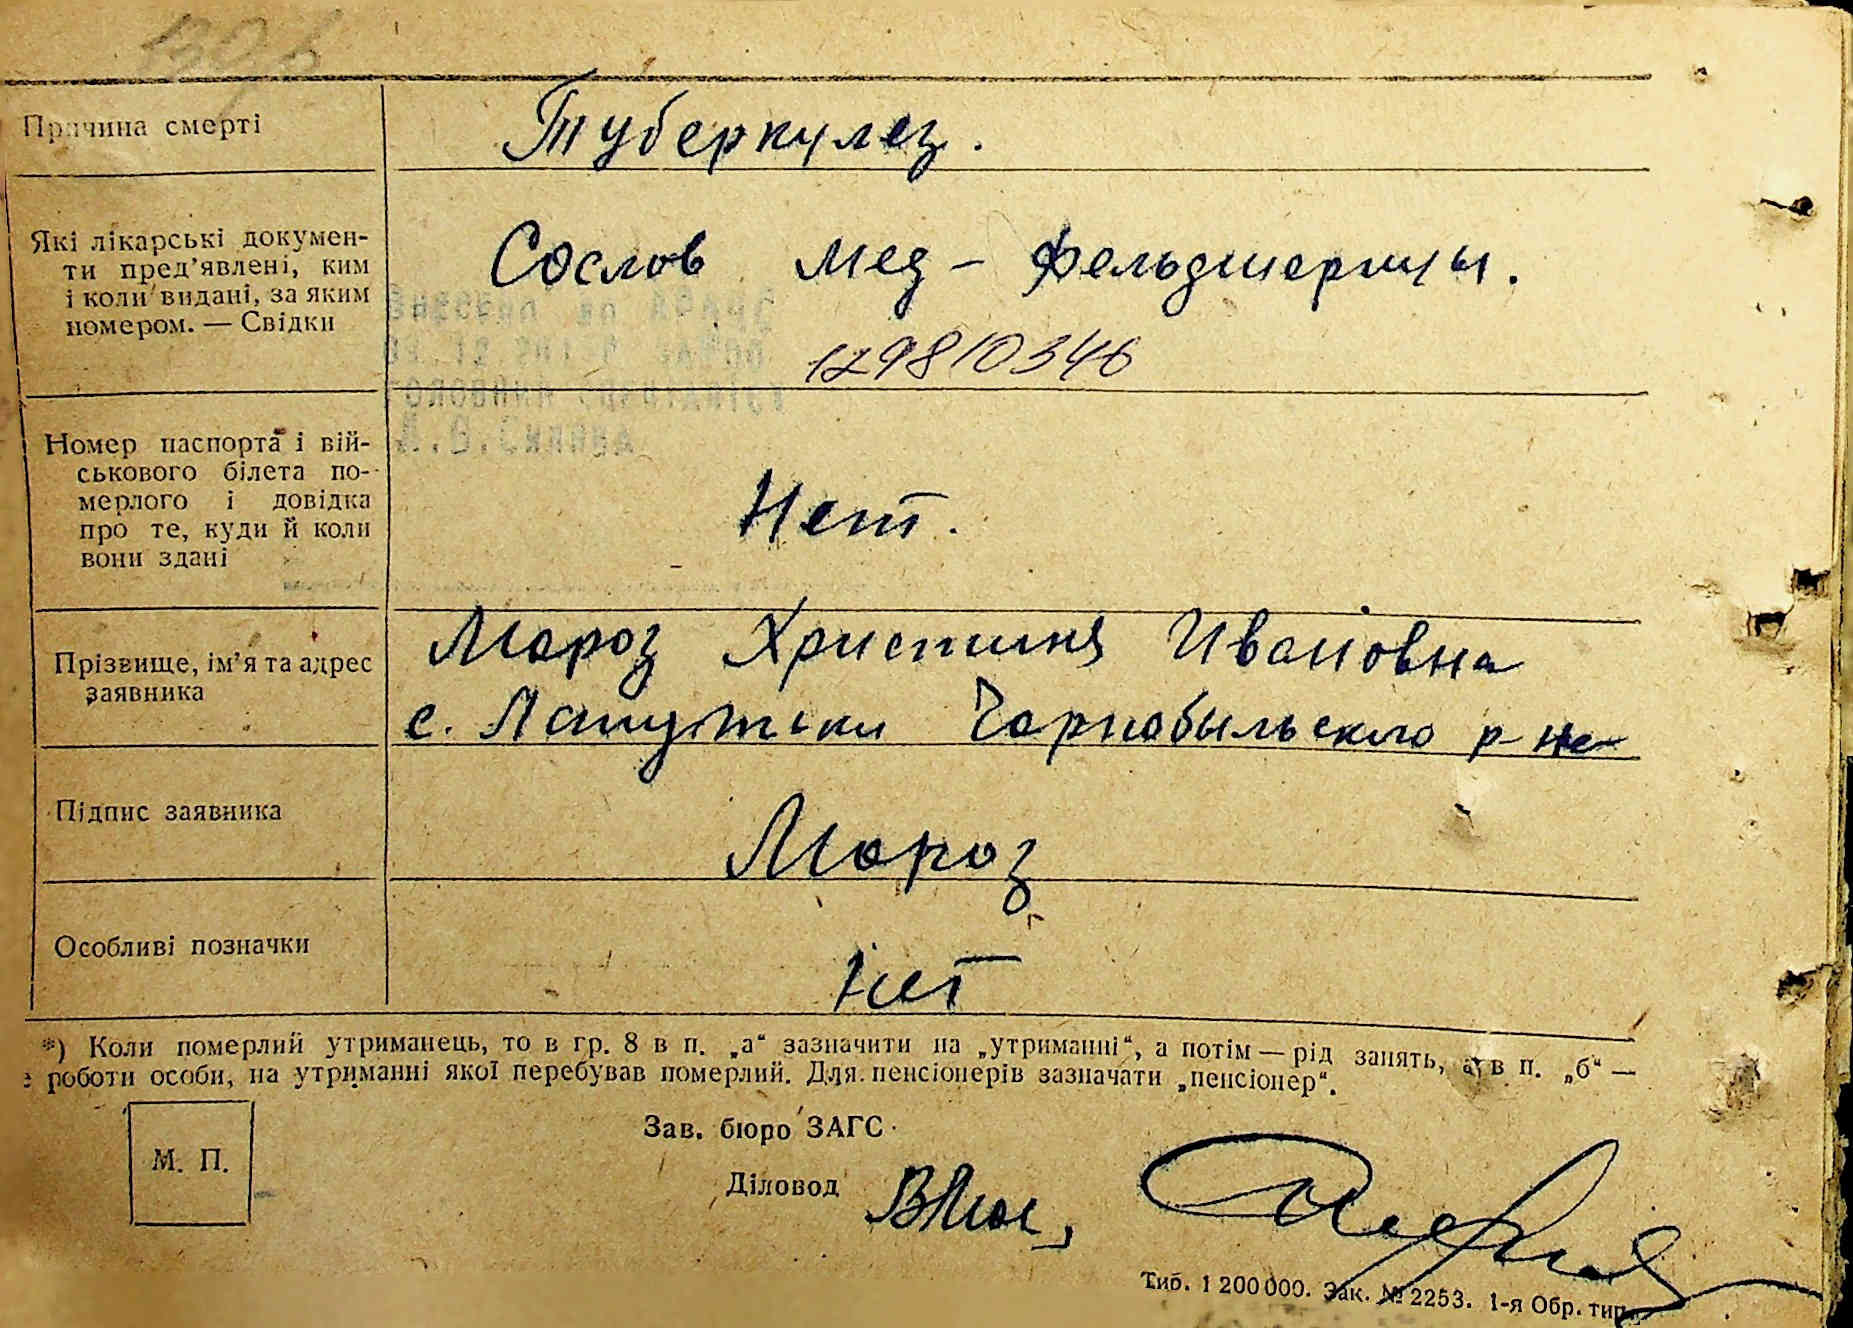 Причина смерті
Туберкулез.
Які лікарські докумен-
ти пред’явлені, ким
і коли видані, за яким
номером. — Свідки
Со слов мед - фельдшерицы.
129810346
Номер паспорта і вій-
ськового білета по-
мерлого і довідка
про те, куди й коли
вони здані
Нет.
Прізвище, ім’я та адрес
заявника
Мороз Христиня Ивановна
с. Чарнобыльского р-на
Підпис заявника
Мороз
Особливі позначки
нет
*) Коли померлий утриманець, то в гр. 8 в п. „а“ зазначити на „утриманні“, а потім — рід занять, а в п. „б“ —
роботи особи, на утриманні якої перебував померлий. Для пенсіонерів зазначати „пенсіонер“.
М. П.
Зав. бюро ЗАГС
Діловод
Тиб. 1 200 000. Зак. № 2253. 1-я Обр. тип.